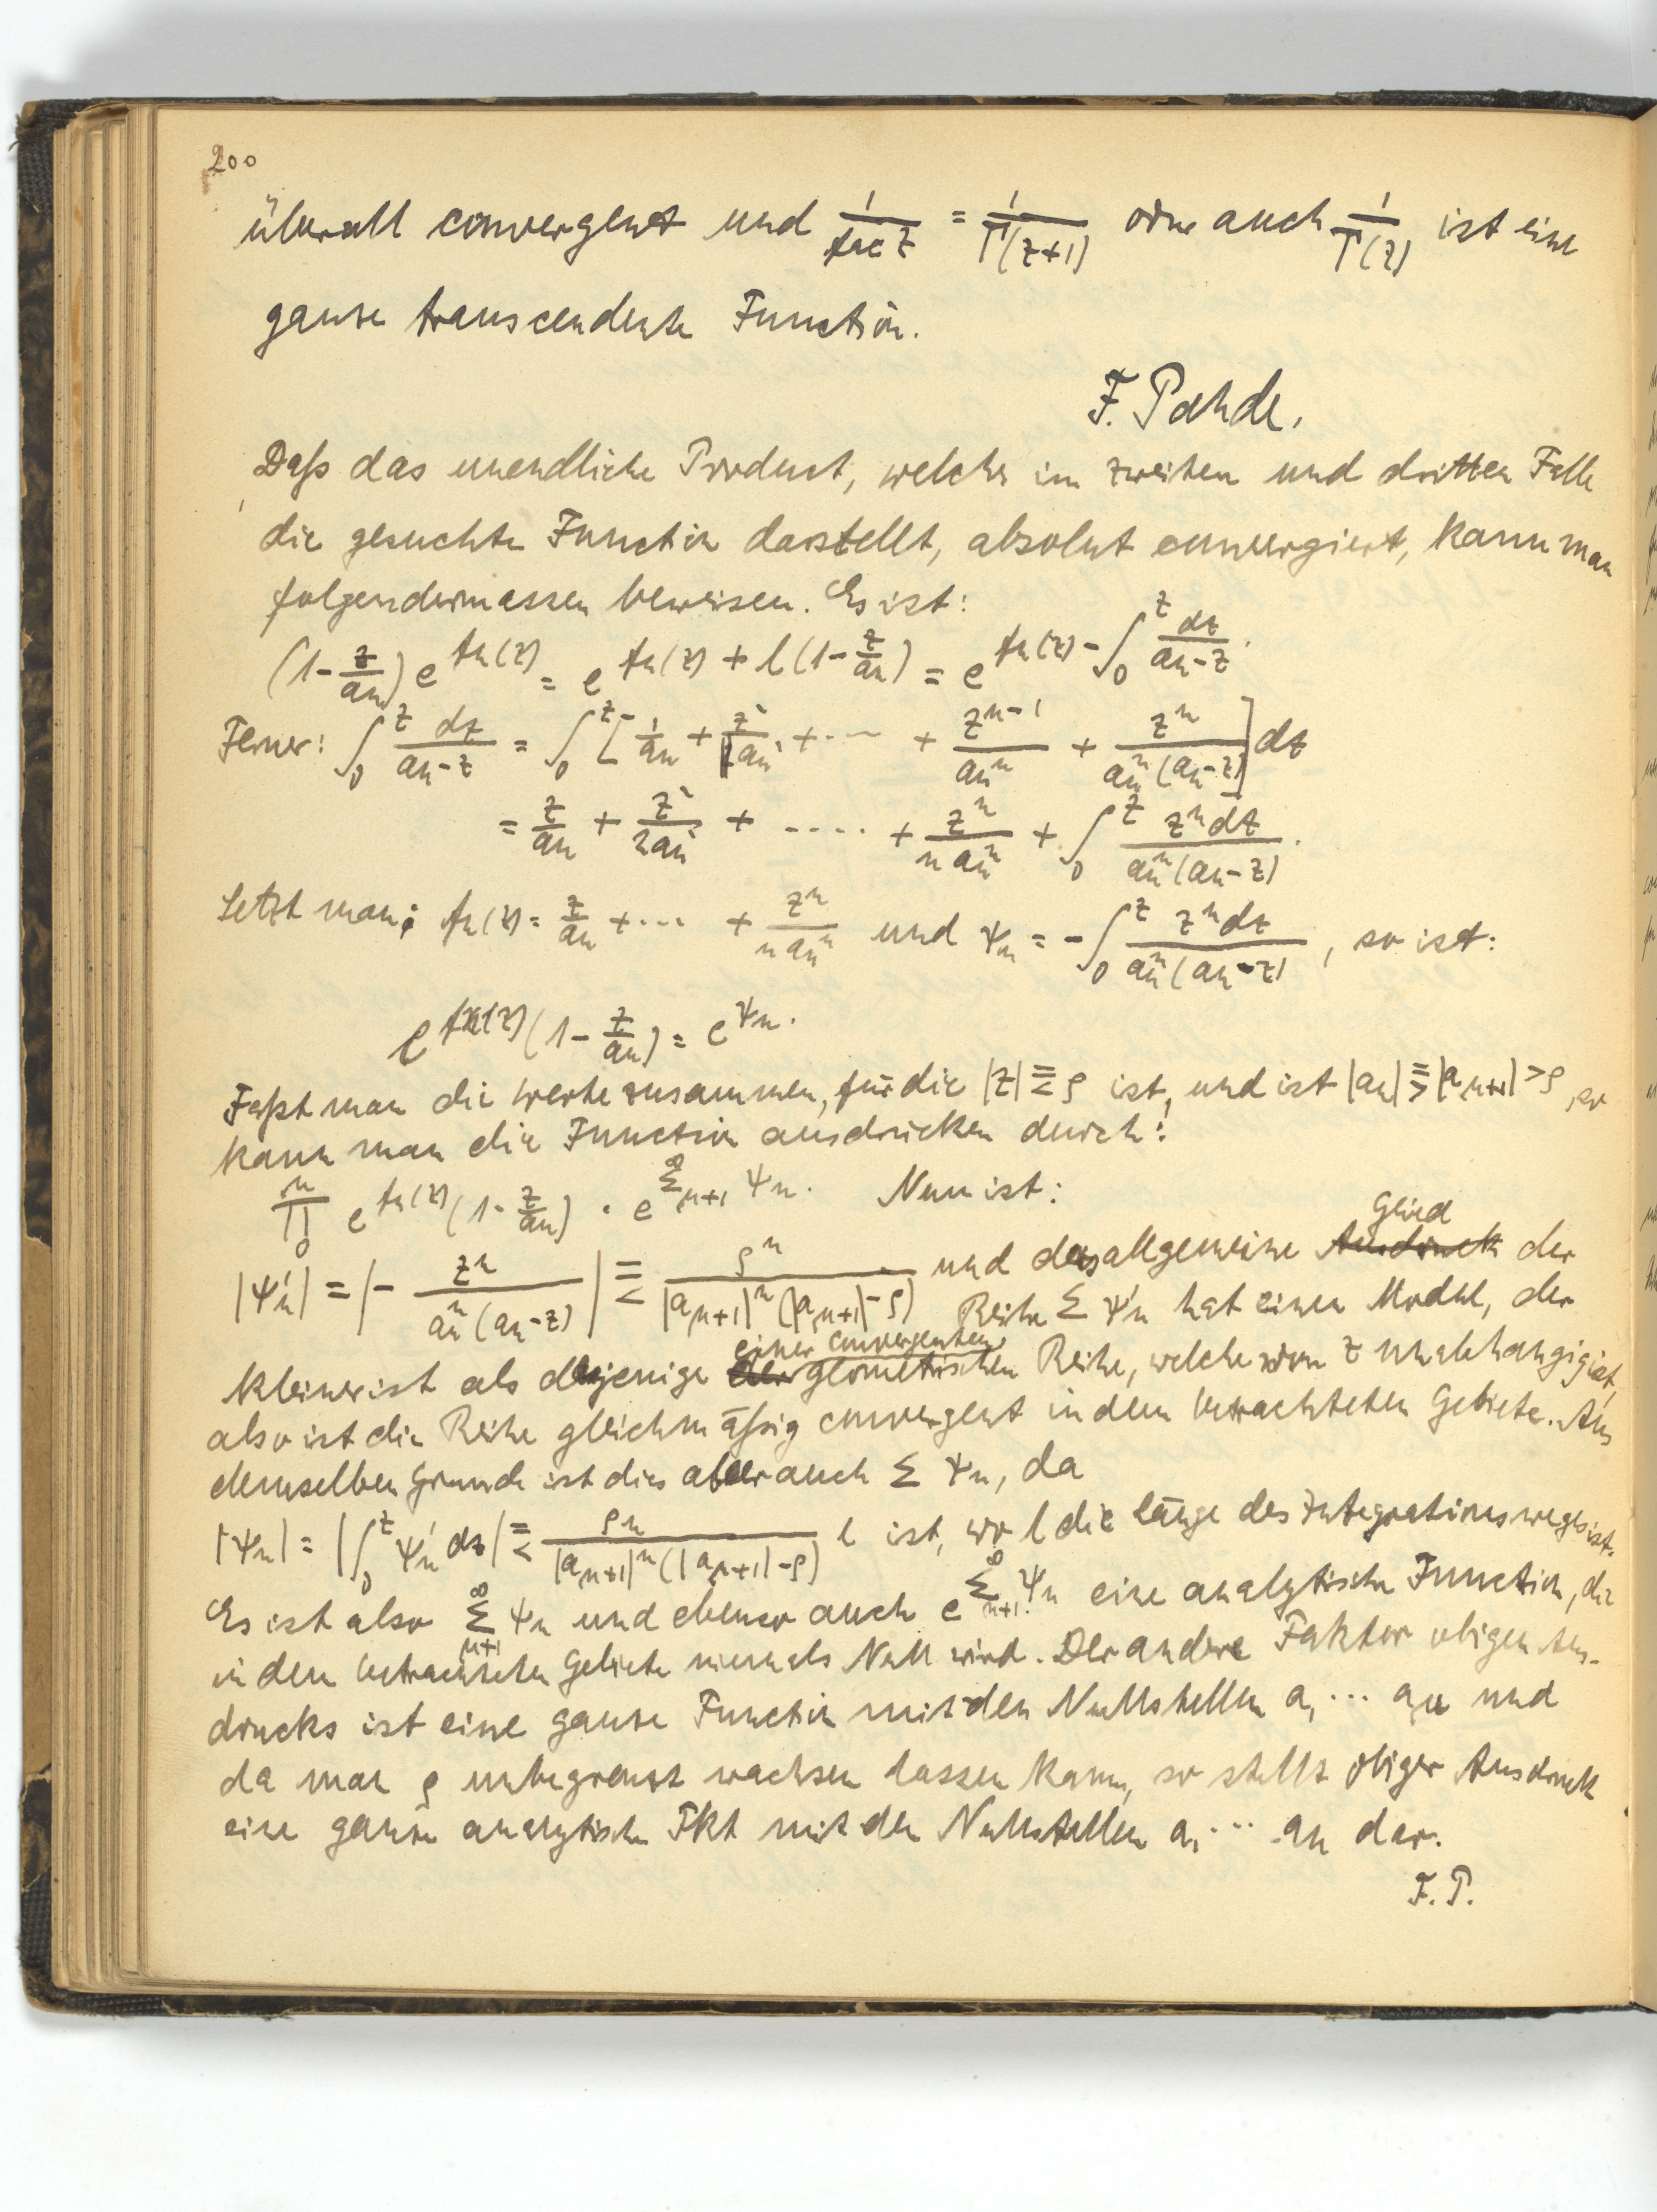 200
überall convergent und 1/fac z = 1/Γ(z+1) oder auch 1/Γ(z) ist eine
ganze transcendente Function.
F. Pahde.
Daß das unendliche Product, welches im zweiten und dritten Falle
die gesuchte Function darstellt, absolut convergiert, kann man
folgendermassen beweisen. Es ist:
(1-z/aₙ)e^{fₙ(z)} = e^{fₙ(z) + l(1-z/aₙ)} = e^{fₙ(z) - ∫₀^z dz/(aₙ-z)}.
Ferner: ∫₀^z dz/(aₙ-z) = ∫₀^z [1/aₙ + z/aₙ² + ··· + z^{n-1}/aₙⁿ + zⁿ/(aₙⁿ(aₙ-z))] dz
= z/aₙ + z²/2aₙ² + ···· + zⁿ/(n aₙⁿ) + ∫₀^z zⁿdz/(aₙⁿ(aₙ-z)).
Setzt man: fₙ(z) = z/aₙ + ··· + zⁿ/(n aₙⁿ) und ψₙ = -∫₀^z zⁿdz/(aₙⁿ(aₙ-z)), so ist:
e^{fₙ(z)}(1-z/aₙ) = e^{ψₙ}.
Faßt man die Werte zusammen, für die |z| ≦ ρ ist, und ist |aₙ| ≧ |a_{μ+1}| > ρ, so
kann man die Function ausdrücken durch:
∏₀^μ e^{fₙ(z)}(1-z/aₙ) · e^{∑_{μ+1}^∞ ψₙ}. Nun ist:
|ψₙ'| = |- zⁿ/(aₙⁿ(aₙ-z))| ≦ ρⁿ/(|a_{μ+1}|ⁿ(|a_{μ+1}|-ρ)) und das allgemeine Ausdruck Glied der
Reihe ∑ψₙ' hat einen Modul, der
kleiner ist als dasjenige der einer convergenten geometrischen Reihe, welche von z unabhängig ist,
also ist die Reihe gleichmäßig convergent in dem betrachteten Gebiete. Aus
demselben Grunde ist dies aber auch ∑ψₙ, da
|ψₙ| = |∫₀^z ψₙ' dz| ≦ ρⁿ/(|a_{μ+1}|ⁿ(|a_{μ+1}|-ρ)) l ist, wo l die länge des Integrationsweges ist.
Es ist also ∑_{μ+1}^∞ ψₙ und ebenso auch e^{∑_{μ+1}^∞ ψₙ} eine analytische Function, die
in dem betrachteten Gebiete niemals Null wird. Der andere Faktor obigen Aus-
drucks ist eine ganze Function mit den Nullstellen a₁ ··· a_μ und
da man ρ unbegrenzt wachsen lassen kann, so stellt obiger Ausdruck
eine ganze analytische Fkt mit den Nullstellen a₁ ··· aₙ dar.
F. P.